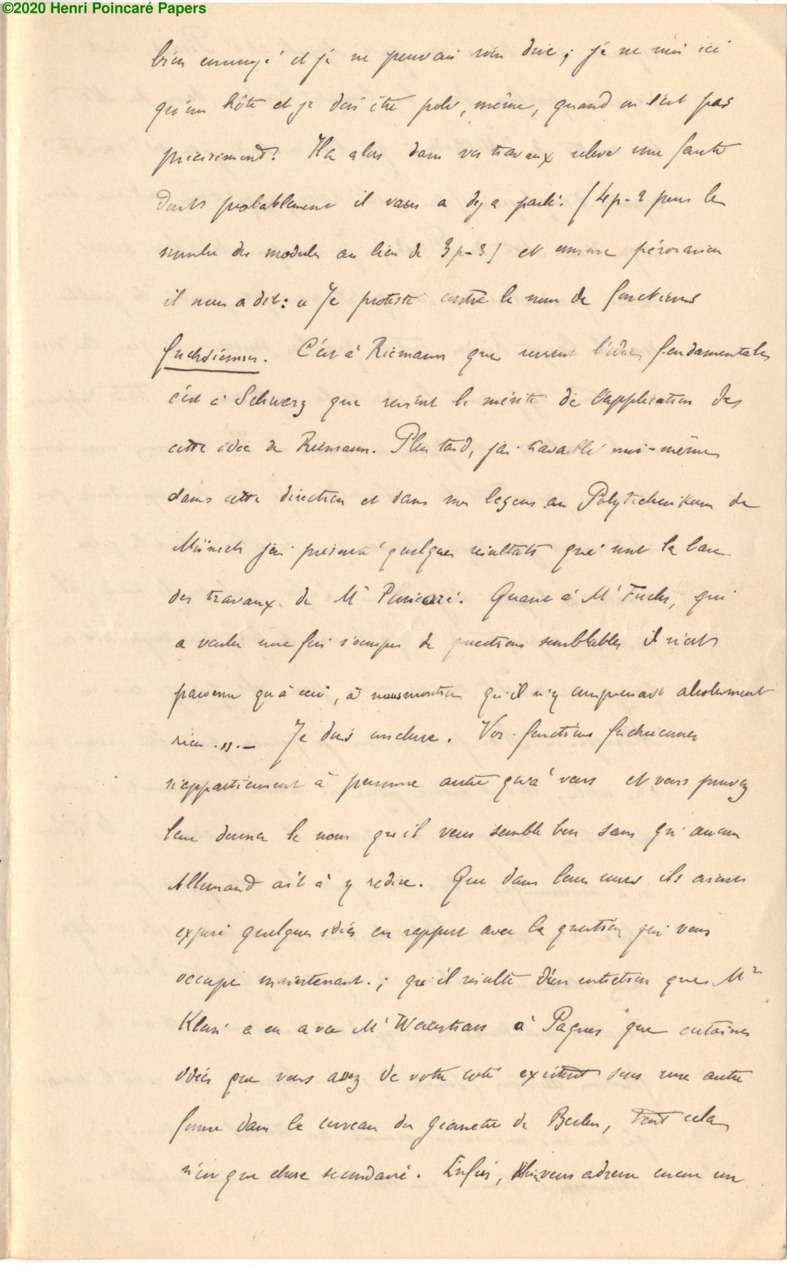 ©2020 Henri Poincaré Papers
bien ennuyé et je ne pouvais rien dire ; je ne suis ici
qu'un hôte et je dois être poli, même, quand on l'est pas
précisément. Il a alors dans vos travaux relevé une faute
dont probablement il vous a déjà parlé. (4p-2 pour le
nombre des modules au lieu de 3p-3) et comme péroraison
il nous a dit : « Je proteste contre le nom de fonctions
fuchsiennes. C'est à Riemann que revient l'idée fondamentale,
c'est à Schwarz que revient le mérite de l'application des
cette idée de Riemann. Plus tard, j'ai travaillé moi-même
dans cette direction et dans mes leçons au Polytechnikum de
Münich j'ai présenté quelques résultats qui sont la base
des travaux de Mr Poincaré. Quant à Mr Fuchs, qui
a voulu une fois s'occuper de questions semblables il n'est
parvenu qu'à ceci, à nous montrer qu'il n'y comprenait absolument
rien .».— Je dois conclure. Vos fonctions fuchsiennes
n'appartiennent à personne autre qu'à vous et vous pouvez
leur donner le nom qu'il vous semble bon sans qu'aucun
Allemand ait à y redire. Que dans leurs cours ils aient
exposé quelques idées en rapport avec la question qui vous
occupe maintenant ; qu'il résulte d'un entretien que Mr
Klein a eu avec Mr Weierstrass à Pâques que certaines
idées que vous avez de votre côté existent sous une autre
forme dans le cerveau du géomètre de Berlin, tout cela
n'est que chose secondaire. Enfin, vous adresse encore un